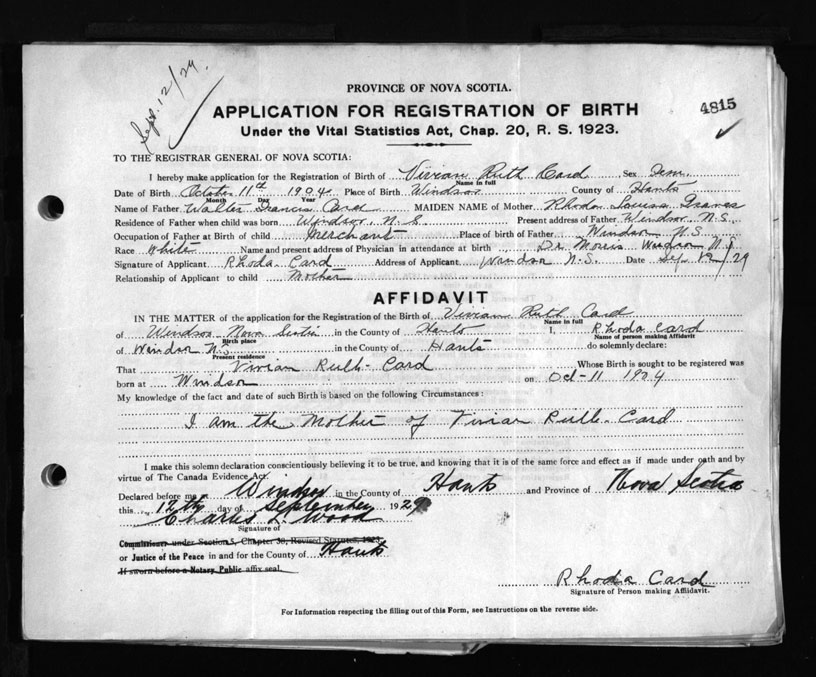 Sept. 12/29.
PROVINCE OF NOVA SCOTIA.
4815
APPLICATION FOR REGISTRATION OF BIRTH
Under the Vital Statistics Act, Chap. 20, R. S. 1923.
TO THE REGISTRAR GENERAL OF NOVA SCOTIA:
I hereby make application for the Registration of Birth of Vivian Ruth Card Sex Fem.
Name in full
Date of Birth October 11th 1904 Place of Birth Windsor County of Hants
Month Day Year
Name of Father Walter Francis Card MAIDEN NAME of Mother Rhoda Louisa Graves
Residence of Father when child was born Windsor, N. S. Present address of Father Windsor, N.S.
Occupation of Father at Birth of child Merchant Place of birth of Father Windsor N.S.
Race White Name and present address of Physician in attendance at birth Dr. Morris Windsor N.S.
Signature of Applicant Rhoda Card Address of Applicant Windsor N.S. Date Sep 12/29
Relationship of Applicant to child Mother
AFFIDAVIT
IN THE MATTER of the application for the Registration of the Birth of Vivian Ruth Card
Name in full
of Windsor Nova Scotia in the County of Hants I, Rhoda Card
Birth place Name of person making Affidavit
of Windsor N.S. in the County of Hants do solemnly declare:
Present residence
That Vivian Ruth Card Whose Birth is sought to be registered was
born at Windsor on Oct-11 1904
My knowledge of the fact and date of such Birth is based on the following Circumstances:
I am the Mother of Vivian Ruth Card
I make this solemn declaration conscientiously believing it to be true, and knowing that it is of the same force and effect as if made under oath and by
virtue of The Canada Evidence Act.
Declared before me at Windsor in the County of Hants and Province of Nova Scotia
this 12th day of September 1929
Charles L. Wood
Signature of
Commissioner under Section 5, Chapter 38, Revised Statutes, 1923
or Justice of the Peace in and for the County of Hants
If sworn before a Notary Public affix seal.
Rhoda Card
Signature of Person making Affidavit.
For Information respecting the filling out of this Form, see Instructions on the reverse side.